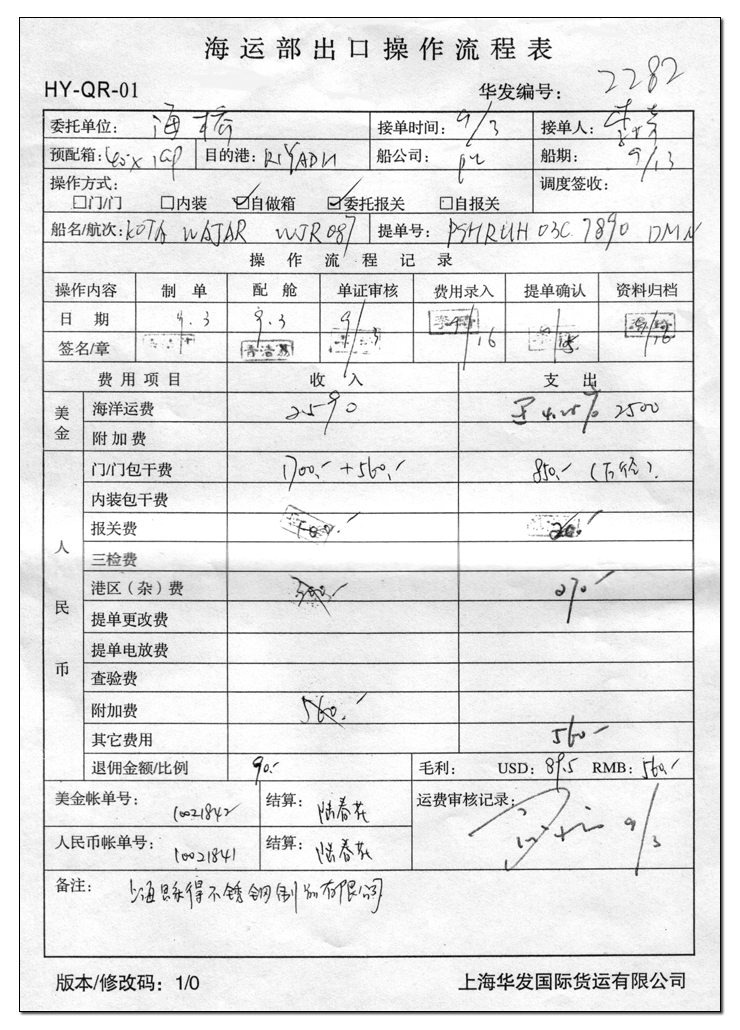 海运部出口操作流程表
HY-QR-01 华发编号: 2282
委托单位: 海 接单时间: 9/3 接单人:
预配箱: 目的港: RIYADH 船公司: 船期: 9/13
操作方式: 调度签收:
门/门 内装 自做箱 委托报关 自报关
船名/航次: KOTA WAJAR WJR087 提单号: PSHRUH03C7890 DMN
操作流程记录
操作内容 制单 配舱 单证审核 费用录入 提单确认 资料归档
日期 9.3 9.3 9/ /16
签名/章
费用项目 收入 支出
美金 海洋运费 2590 4.25% 2500
附加费
人民币 门/门包干费 1700.- +560.- 850.-
内装包干费
报关费
三检费
港区(杂)费 270.-
提单更改费
提单电放费
查验费
附加费 560.-
其它费用 560-
退佣金额/比例 90.- 毛利: USD: 89.5 RMB: 560.-
美金帐单号: 10021842 结算: 陆春花 运费审核记录: 9/3
人民币帐单号: 10021841 结算: 陆春花
备注: 上海 得不锈钢制 有限公司
版本/修改码: 1/0 上海华发国际货运有限公司